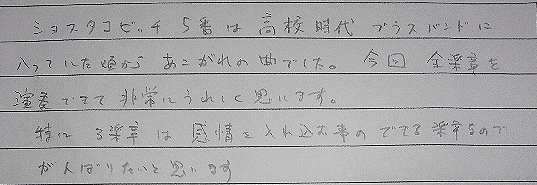 ショスタコビッチ 5番は 高校時代 ブラスバンドに
入っていた頃から あこがれの曲でした。 今回 全楽章を
演奏できて 非常にうれしく思います。
特に 3楽章 は 感情を入れ込む事の できる 楽章なので
がんばりたいと思います